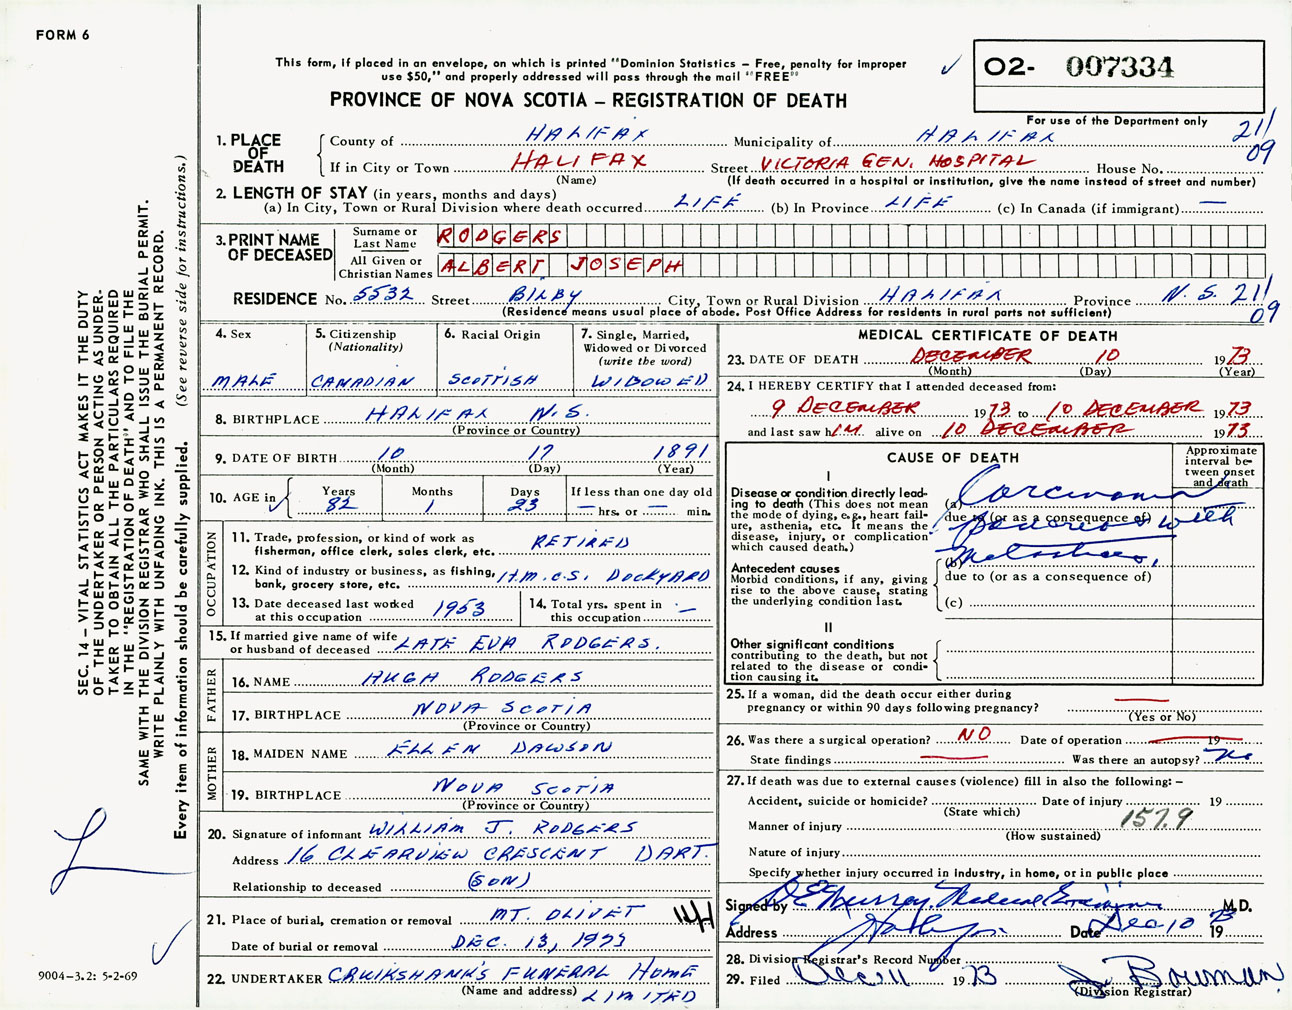 FORM 6
This form, if placed in an envelope, on which is printed "Dominion Statistics – Free, penalty for improper
use $50," and properly addressed will pass through the mail "FREE"
PROVINCE OF NOVA SCOTIA – REGISTRATION OF DEATH
02- 007334
For use of the Department only
21/
09
1. PLACE OF DEATH
County of HALIFAX Municipality of HALIFAX
If in City or Town HALIFAX Street VICTORIA GEN. HOSPITAL House No.
(Name) (If death occurred in a hospital or institution, give the name instead of street and number)
2. LENGTH OF STAY (in years, months and days)
(a) In City, Town or Rural Division where death occurred LIFE (b) In Province LIFE (c) In Canada (if immigrant) —
3. PRINT NAME OF DECEASED
Surname or Last Name RODGERS
All Given or Christian Names ALBERT JOSEPH
RESIDENCE No. 5532 Street BILBY City, Town or Rural Division HALIFAX Province N.S. 21/
09
(Residence means usual place of abode. Post Office Address for residents in rural parts not sufficient)
4. Sex
MALE
5. Citizenship
(Nationality)
CANADIAN
6. Racial Origin
SCOTTISH
7. Single, Married,
Widowed or Divorced
(write the word)
WIDOWED
8. BIRTHPLACE HALIFAX N.S.
(Province or Country)
9. DATE OF BIRTH 10 17 1891
(Month) (Day) (Year)
10. AGE in
Years Months Days If less than one day old
82 1 23 — hrs. or — min.
OCCUPATION
11. Trade, profession, or kind of work as
fisherman, office clerk, sales clerk, etc. RETIRED
12. Kind of industry or business, as fishing,
bank, grocery store, etc. H.M.C.S. DOCKYARD
13. Date deceased last worked
at this occupation 1953
14. Total yrs. spent in
this occupation —
15. If married give name of wife
or husband of deceased LATE EVA RODGERS.
FATHER
16. NAME HUGH RODGERS
17. BIRTHPLACE NOVA SCOTIA
(Province or Country)
MOTHER
18. MAIDEN NAME ELLEN DAWSON
19. BIRTHPLACE NOVA SCOTIA
(Province or Country)
20. Signature of informant WILLIAM J. RODGERS
Address 16 CLEARVIEW CRESCENT DART.
Relationship to deceased (SON)
21. Place of burial, cremation or removal MT. OLIVET
Date of burial or removal DEC. 13, 1973
22. UNDERTAKER CRUIKSHANK'S FUNERAL HOME
(Name and address) LIMITED
MEDICAL CERTIFICATE OF DEATH
23. DATE OF DEATH DECEMBER 10 1973
(Month) (Day) (Year)
24. I HEREBY CERTIFY that I attended deceased from:
9 DECEMBER 1973 to 10 DECEMBER 1973
and last saw hIM alive on 10 DECEMBER 1973
CAUSE OF DEATH
Approximate
interval be-
tween onset
and death
I
Disease or condition directly lead-
ing to death (This does not mean
the mode of dying, e.g., heart fail-
ure, asthenia, etc. It means the
disease, injury, or complication
which caused death.)
(a) Carcinoma
due to (or as a consequence of)
pancreas with
(b) Metastases.
due to (or as a consequence of)
(c)
Antecedent causes
Morbid conditions, if any, giving
rise to the above cause, stating
the underlying condition last.
II
Other significant conditions
contributing to the death, but not
related to the disease or condi-
tion causing it.
25. If a woman, did the death occur either during
pregnancy or within 90 days following pregnancy? —
(Yes or No)
26. Was there a surgical operation? NO Date of operation — 19
State findings — Was there an autopsy? No
27. If death was due to external causes (violence) fill in also the following: –
Accident, suicide or homicide? Date of injury 19
(State which)
Manner of injury 157.9
(How sustained)
Nature of injury
Specify whether injury occurred in industry, in home, or in public place
Signed by D E Murray Medical Examiner M.D.
Address Date Dec 10 1973
28. Division Registrar's Record Number
29. Filed Dec 11 1973 Bowman
(Division Registrar)
SEC. 14 – VITAL STATISTICS ACT MAKES IT THE DUTY
OF THE UNDERTAKER OR PERSON ACTING AS UNDER-
TAKER TO OBTAIN ALL THE PARTICULARS REQUIRED
IN THE "REGISTRATION OF DEATH" AND TO FILE THE
SAME WITH THE DIVISION REGISTRAR WHO SHALL ISSUE THE BURIAL PERMIT.
WRITE PLAINLY WITH UNFADING INK. THIS IS A PERMANENT RECORD.
Every item of information should be carefully supplied. (See reverse side for instructions.)
9004–3.2: 5-2-69